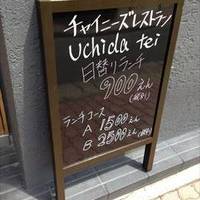 チャイニーズレストラン
Uchida tei
日替りランチ
900えん
(税別)
ランチコース
A 1500えん
B 2500えん(税別)